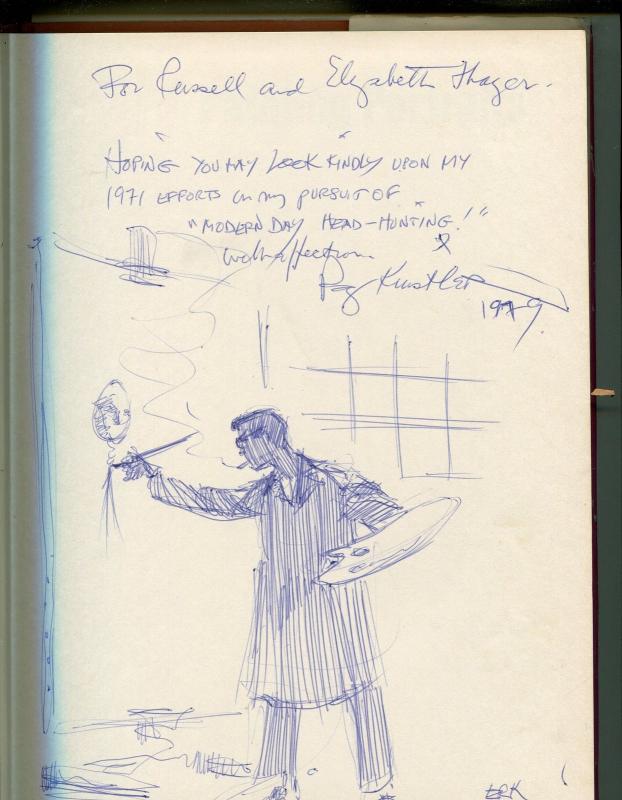 For Russell and Elizabeth Thayer.
HOPING YOU MAY LOOK KINDLY UPON MY
1971 EFFORTS in my PURSUIT OF
"MODERN DAY HEAD-HUNTING!"
with affection
Ray Kinstler
1979
ERK